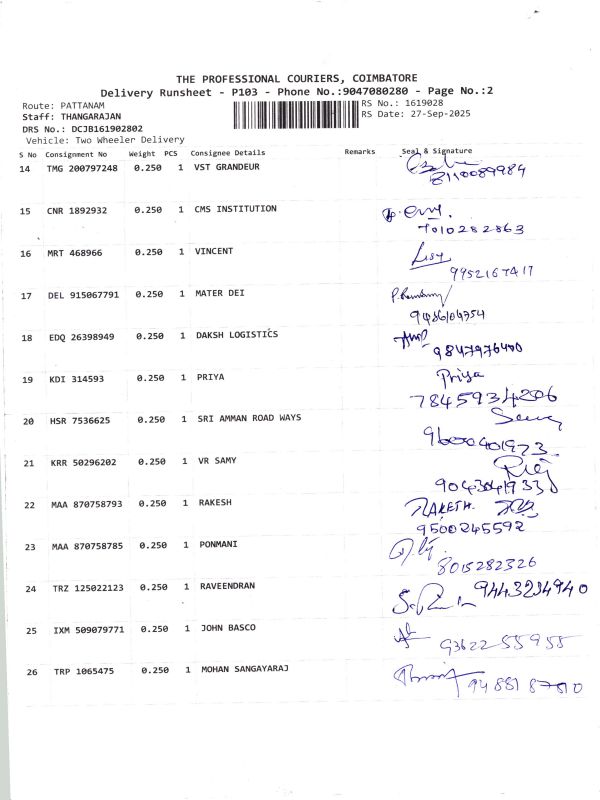 THE PROFESSIONAL COURIERS, COIMBATORE
Delivery Runsheet - P103 - Phone No.:9047080280 - Page No.:2
Route: PATTANAM RS No.: 1619028
Staff: THANGARAJAN RS Date: 27-Sep-2025
DRS No.: DCJB161902802
Vehicle: Two Wheeler Delivery
S No Consignment No Weight PCS Consignee Details Remarks Seal & Signature
14 TMG 200797248 0.250 1 VST GRANDEUR
8110089984
15 CNR 1892932 0.250 1 CMS INSTITUTION
7010282863
16 MRT 468966 0.250 1 VINCENT
9952167417
17 DEL 915067791 0.250 1 MATER DEI
9486104354
18 EDQ 26398949 0.250 1 DAKSH LOGISTICS
9847976400
19 KDI 314593 0.250 1 PRIYA Priya
7845934206
20 HSR 7536625 0.250 1 SRI AMMAN ROAD WAYS
9600401973
21 KRR 50296202 0.250 1 VR SAMY
90430419330
22 MAA 870758793 0.250 1 RAKESH RAKESH
9500245592
23 MAA 870758785 0.250 1 PONMANI
8015282326
24 TRZ 125022123 0.250 1 RAVEENDRAN 9443234940
25 IXM 509079771 0.250 1 JOHN BASCO
93622 55955
26 TRP 1065475 0.250 1 MOHAN SANGAYARAJ
94881 87010